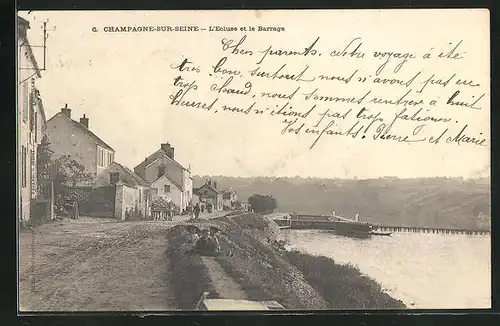 6. CHAMPAGNE-SUR-SEINE — L'Ecluse et le Barrage
Chers parents. Notre voyage à été
très bon, surtout nous n'avons pas eu
trop chaud, nous sommes entrée à huit
heures, nous n'étions pas trop fatiguer.
Vos enfants. Pierre et Marie